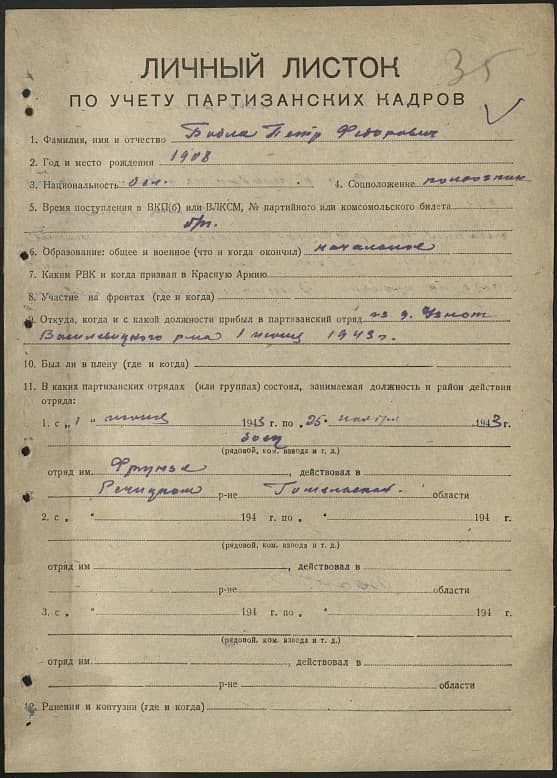 35
ЛИЧНЫЙ ЛИСТОК
ПО УЧЕТУ ПАРТИЗАНСКИХ КАДРОВ
1. Фамилия, имя и отчество Петр Федорович
2. Год и место рождения 1908
3. Национальность бел. 4. Соцположение
5. Время поступления в ВКП(б) или ВЛКСМ, № партийного или комсомольского билета
б/п.
6. Образование: общее и военное (что и когда окончил) начальное
7. Каким РВК и когда призван в Красную Армию
8. Участие на фронтах (где и когда)
9. Откуда, когда и с какой должности прибыл в партизанский отряд из д. Узнож
Василевицкого р-на 1 июня 1943 г.
10. Был ли в плену (где и когда)
11. В каких партизанских отрядах (или группах) состоял, занимаемая должность и район действия
отряда:
1. с „ 1 " июня 1943 г. по „ 25 " ноября 1943 г.
боец
(рядовой, ком. взвода и т. д.)
отряд им. Фрунзе, действовал в
Речицком р-не Гомельской области
2. с „ " 194 г. по „ " 194 г.
(рядовой, ком. взвода и т. д.)
отряд им , действовал в
р-не области
3. с „ " 194 г. по „ " 194 г.
(рядовой, ком. взвода и т. д.)
отряд им. , действовал в
р-не области
12. Ранения и контузии (где и когда)